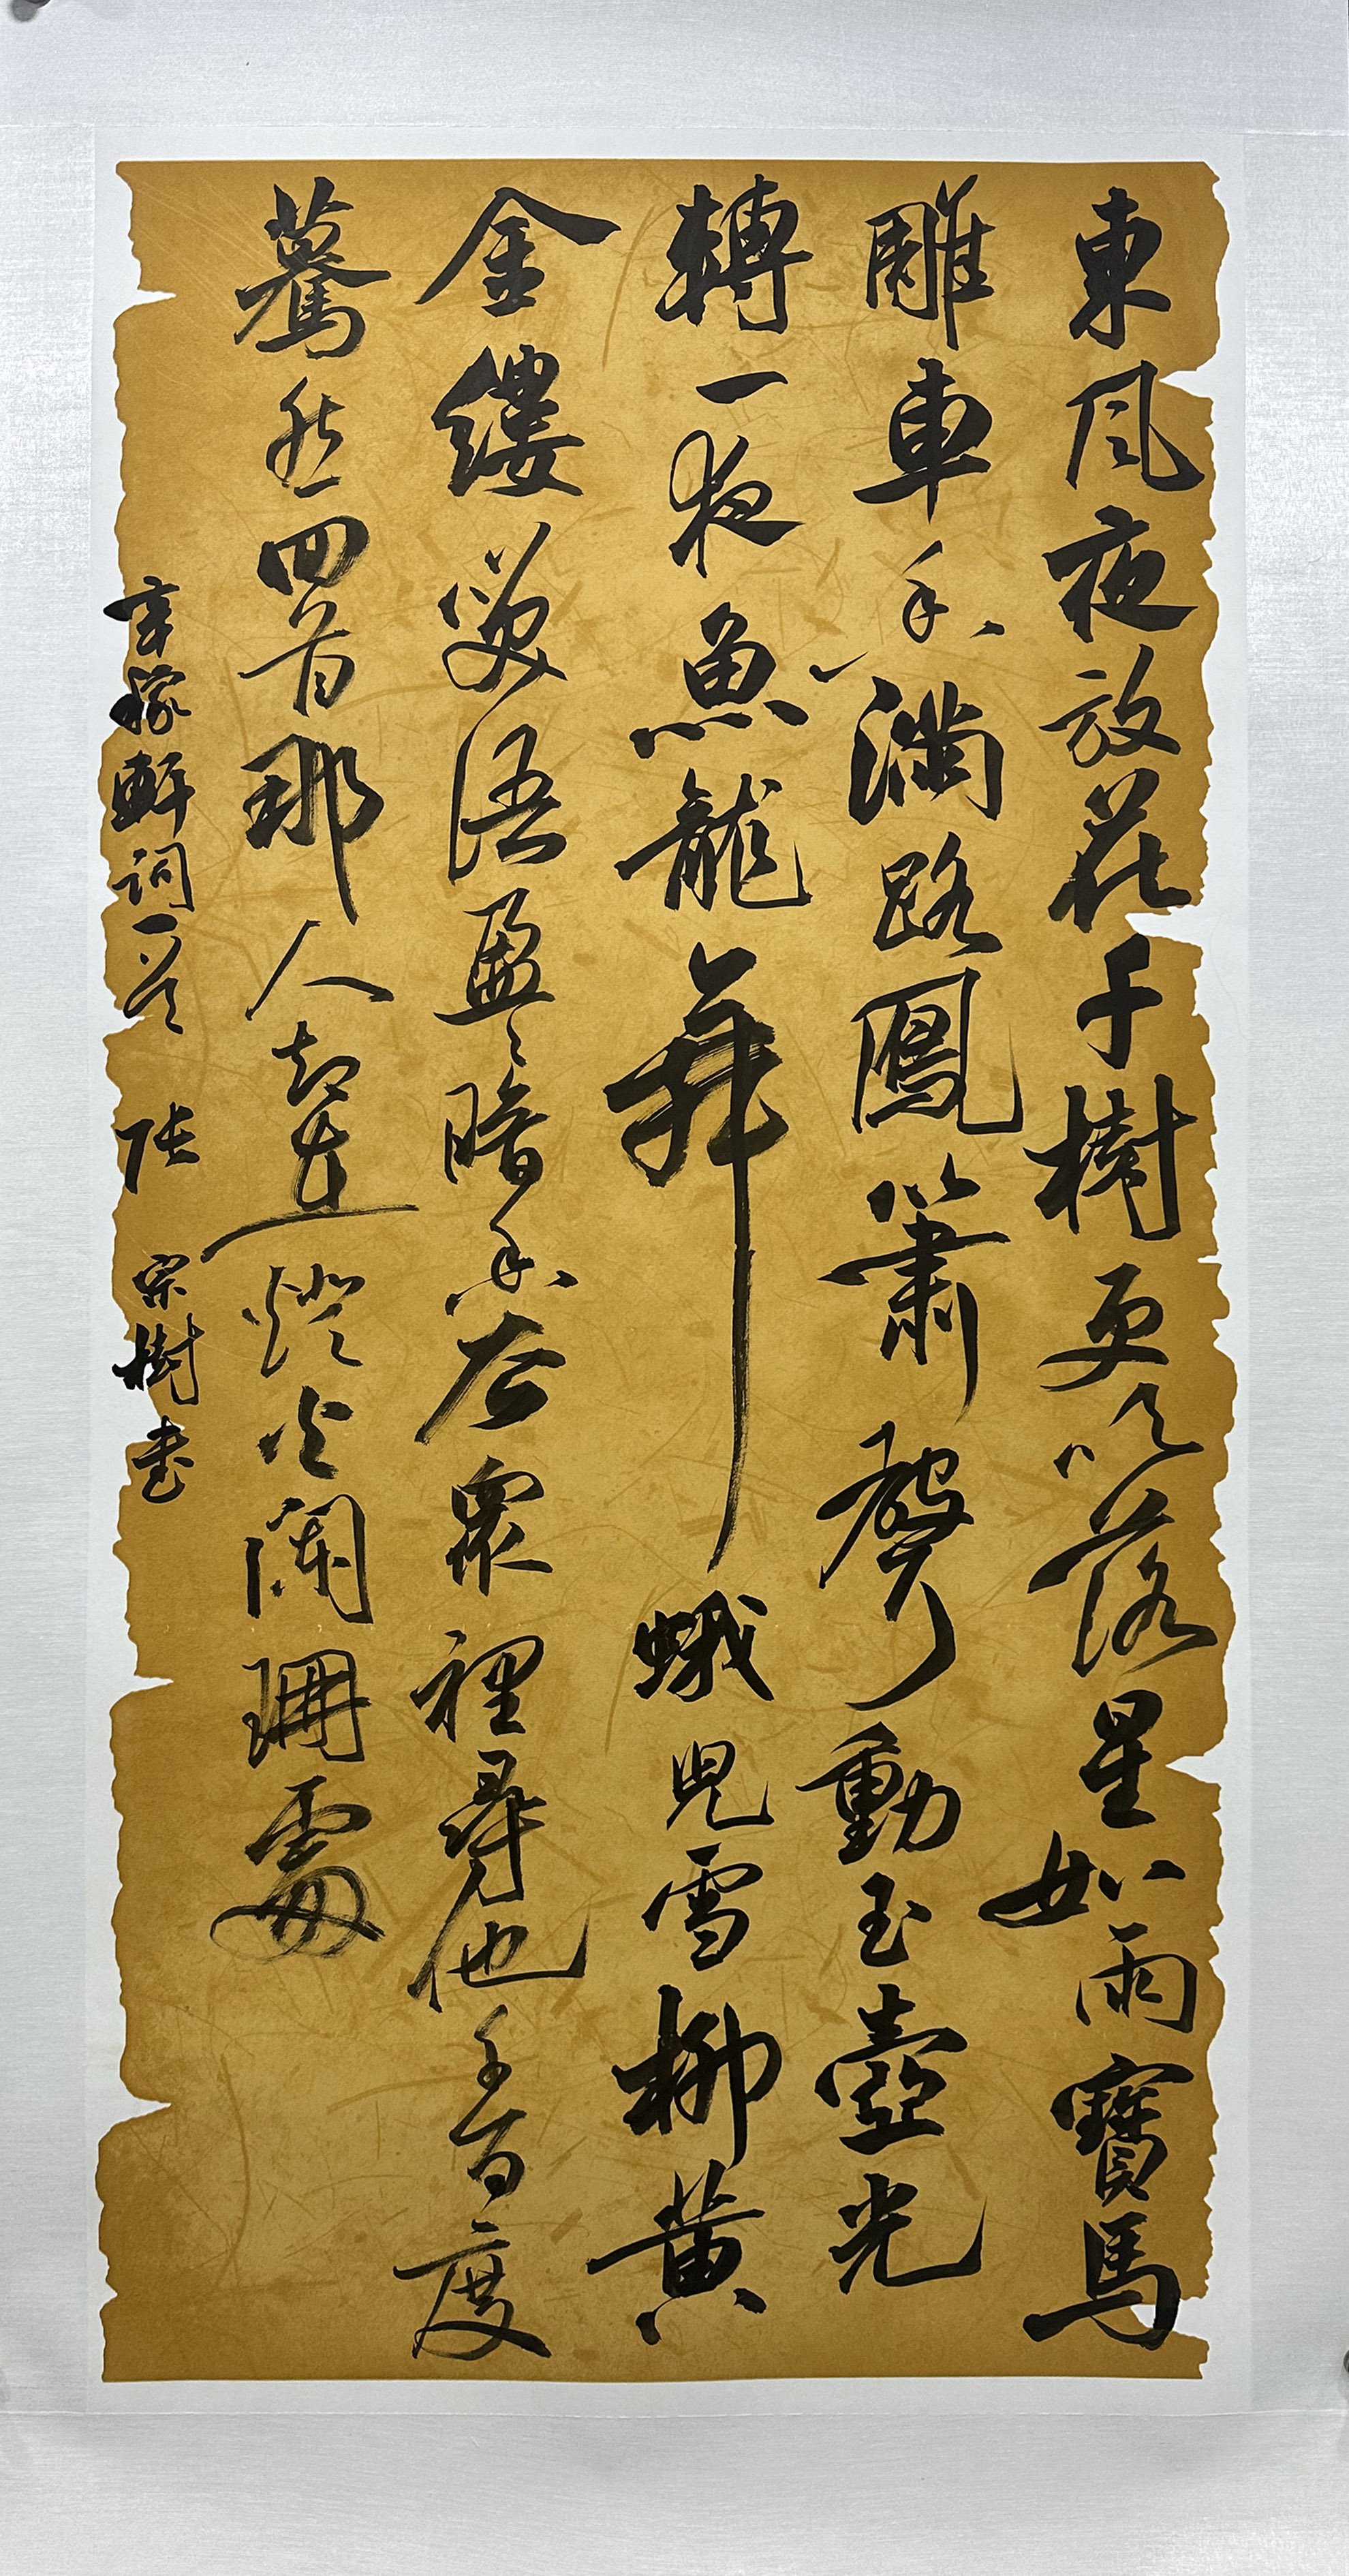 東風夜放花千樹更吹落星如雨寶馬
雕車香滿路鳳簫聲動玉壺光
轉一夜魚龍舞蛾兒雪柳黃
金縷笑語盈々暗香去眾裡尋他千百度
驀然回首那人却在燈火闌珊處
辛稼軒詞一首 張宗樹書